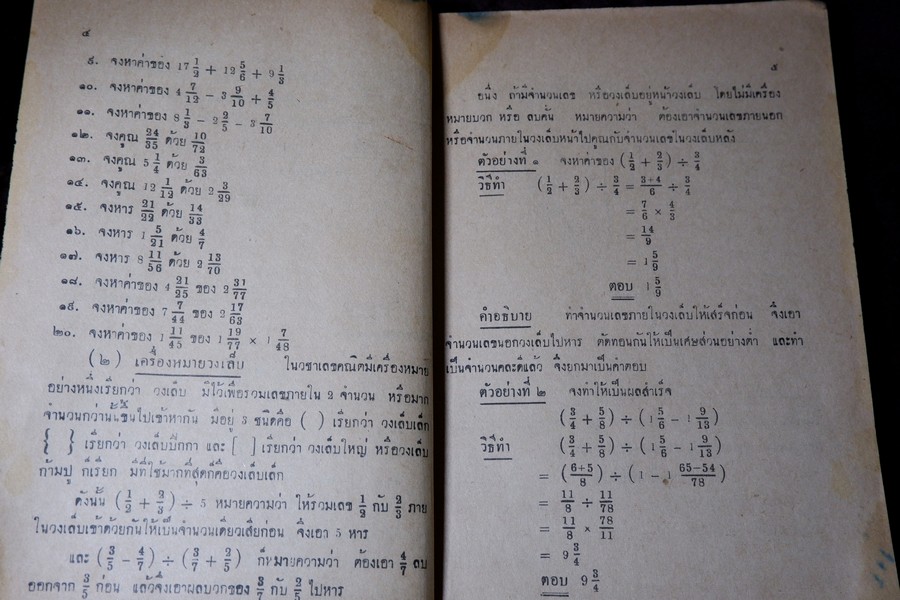 ๔
๙. จงหาค่าของ 17 1/2 + 12 5/6 + 9 1/3
๑๐. จงหาค่าของ 4 7/12 − 3 9/10 + 4/5
๑๑. จงหาค่าของ 8 1/3 − 2 2/5 − 3 7/10
๑๒. จงคูณ 24/35 ด้วย 10/72
๑๓. จงคูณ 5 1/4 ด้วย 3/63
๑๔. จงคูณ 12 1/12 ด้วย 2 3/29
๑๕. จงหาร 21/22 ด้วย 14/33
๑๖. จงหาร 1 5/21 ด้วย 4/7
๑๗. จงหาร 8 11/56 ด้วย 2 13/70
๑๘. จงหาค่าของ 4 21/25 ของ 2 31/77
๑๙. จงหาค่าของ 7 7/44 ของ 2 17/63
๒๐. จงหาค่าของ 1 11/45 ของ 1 19/77 × 1 7/48
(๒) เครื่องหมายวงเล็บ ในวิชาเลขคณิตมีเครื่องหมาย
อย่างหนึ่งเรียกว่า วงเล็บ มีไว้เพื่อรวมเลขภายใน 2 จำนวน หรือมาก
จำนวนกว่านั้นขึ้นไปเข้าหากัน มีอยู่ 3 ชนิดคือ ( ) เรียกว่า วงเล็บเล็ก
{ } เรียกว่า วงเล็บปีกกา และ [ ] เรียกว่า วงเล็บใหญ่ หรือวงเล็บ
ก้ามปู ก็เรียก มีที่ใช้มากที่สุดก็คือวงเล็บเล็ก
ดังนั้น (1/2 + 2/3) ÷ 5 หมายความว่า ให้รวมเลข 1/2 กับ 2/3 ภาย
ในวงเล็บเข้าด้วยกันให้เป็นจำนวนเดียวเสียก่อน จึงเอา 5 หาร
และ (3/5 − 4/7) ÷ (3/7 + 2/5) ก็หมายความว่า ต้องเอา 4/7 ลบ
ออกจาก 3/5 ก่อน แล้วจึงเอาผลบวกของ 3/7 กับ 2/5 ไปหาร
๕
อนึ่ง ถ้ามีจำนวนเลข หรือวงเล็บอยู่หน้าวงเล็บ โดยไม่มีเครื่อง
หมายบวก หรือ ลบคั่น หมายความว่า ต้องเอาจำนวนเลขภายนอก
หรือจำนวนภายในวงเล็บหน้าไปคูณกับจำนวนเลขในวงเล็บหลัง
ตัวอย่างที่ ๑ จงหาค่าของ (1/2 + 2/3) ÷ 3/4
วิธีทำ (1/2 + 2/3) ÷ 3/4 = 3+4/6 ÷ 3/4
= 7/6 × 4/3
= 14/9
= 1 5/9
ตอบ 1 5/9
คำอธิบาย ทำจำนวนเลขภายในวงเล็บให้เสร็จก่อน จึงเอา
จำนวนเลขนอกวงเล็บไปหาร ตัดทอนกันให้เป็นเศษส่วนอย่างต่ำ และทำ
เป็นจำนวนคละดีแล้ว จึงยกมาเป็นคำตอบ
ตัวอย่างที่ ๒ จงทำให้เป็นผลสำเร็จ
(3/4 + 5/8) ÷ (1 5/6 − 1 9/13)
วิธีทำ (3/4 + 5/8) ÷ (1 5/6 − 1 9/13)
= (6+5/8) ÷ (1 − 1 65−54/78)
= 11/8 ÷ 11/78
= 11/8 × 78/11
= 9 3/4
ตอบ 9 3/4